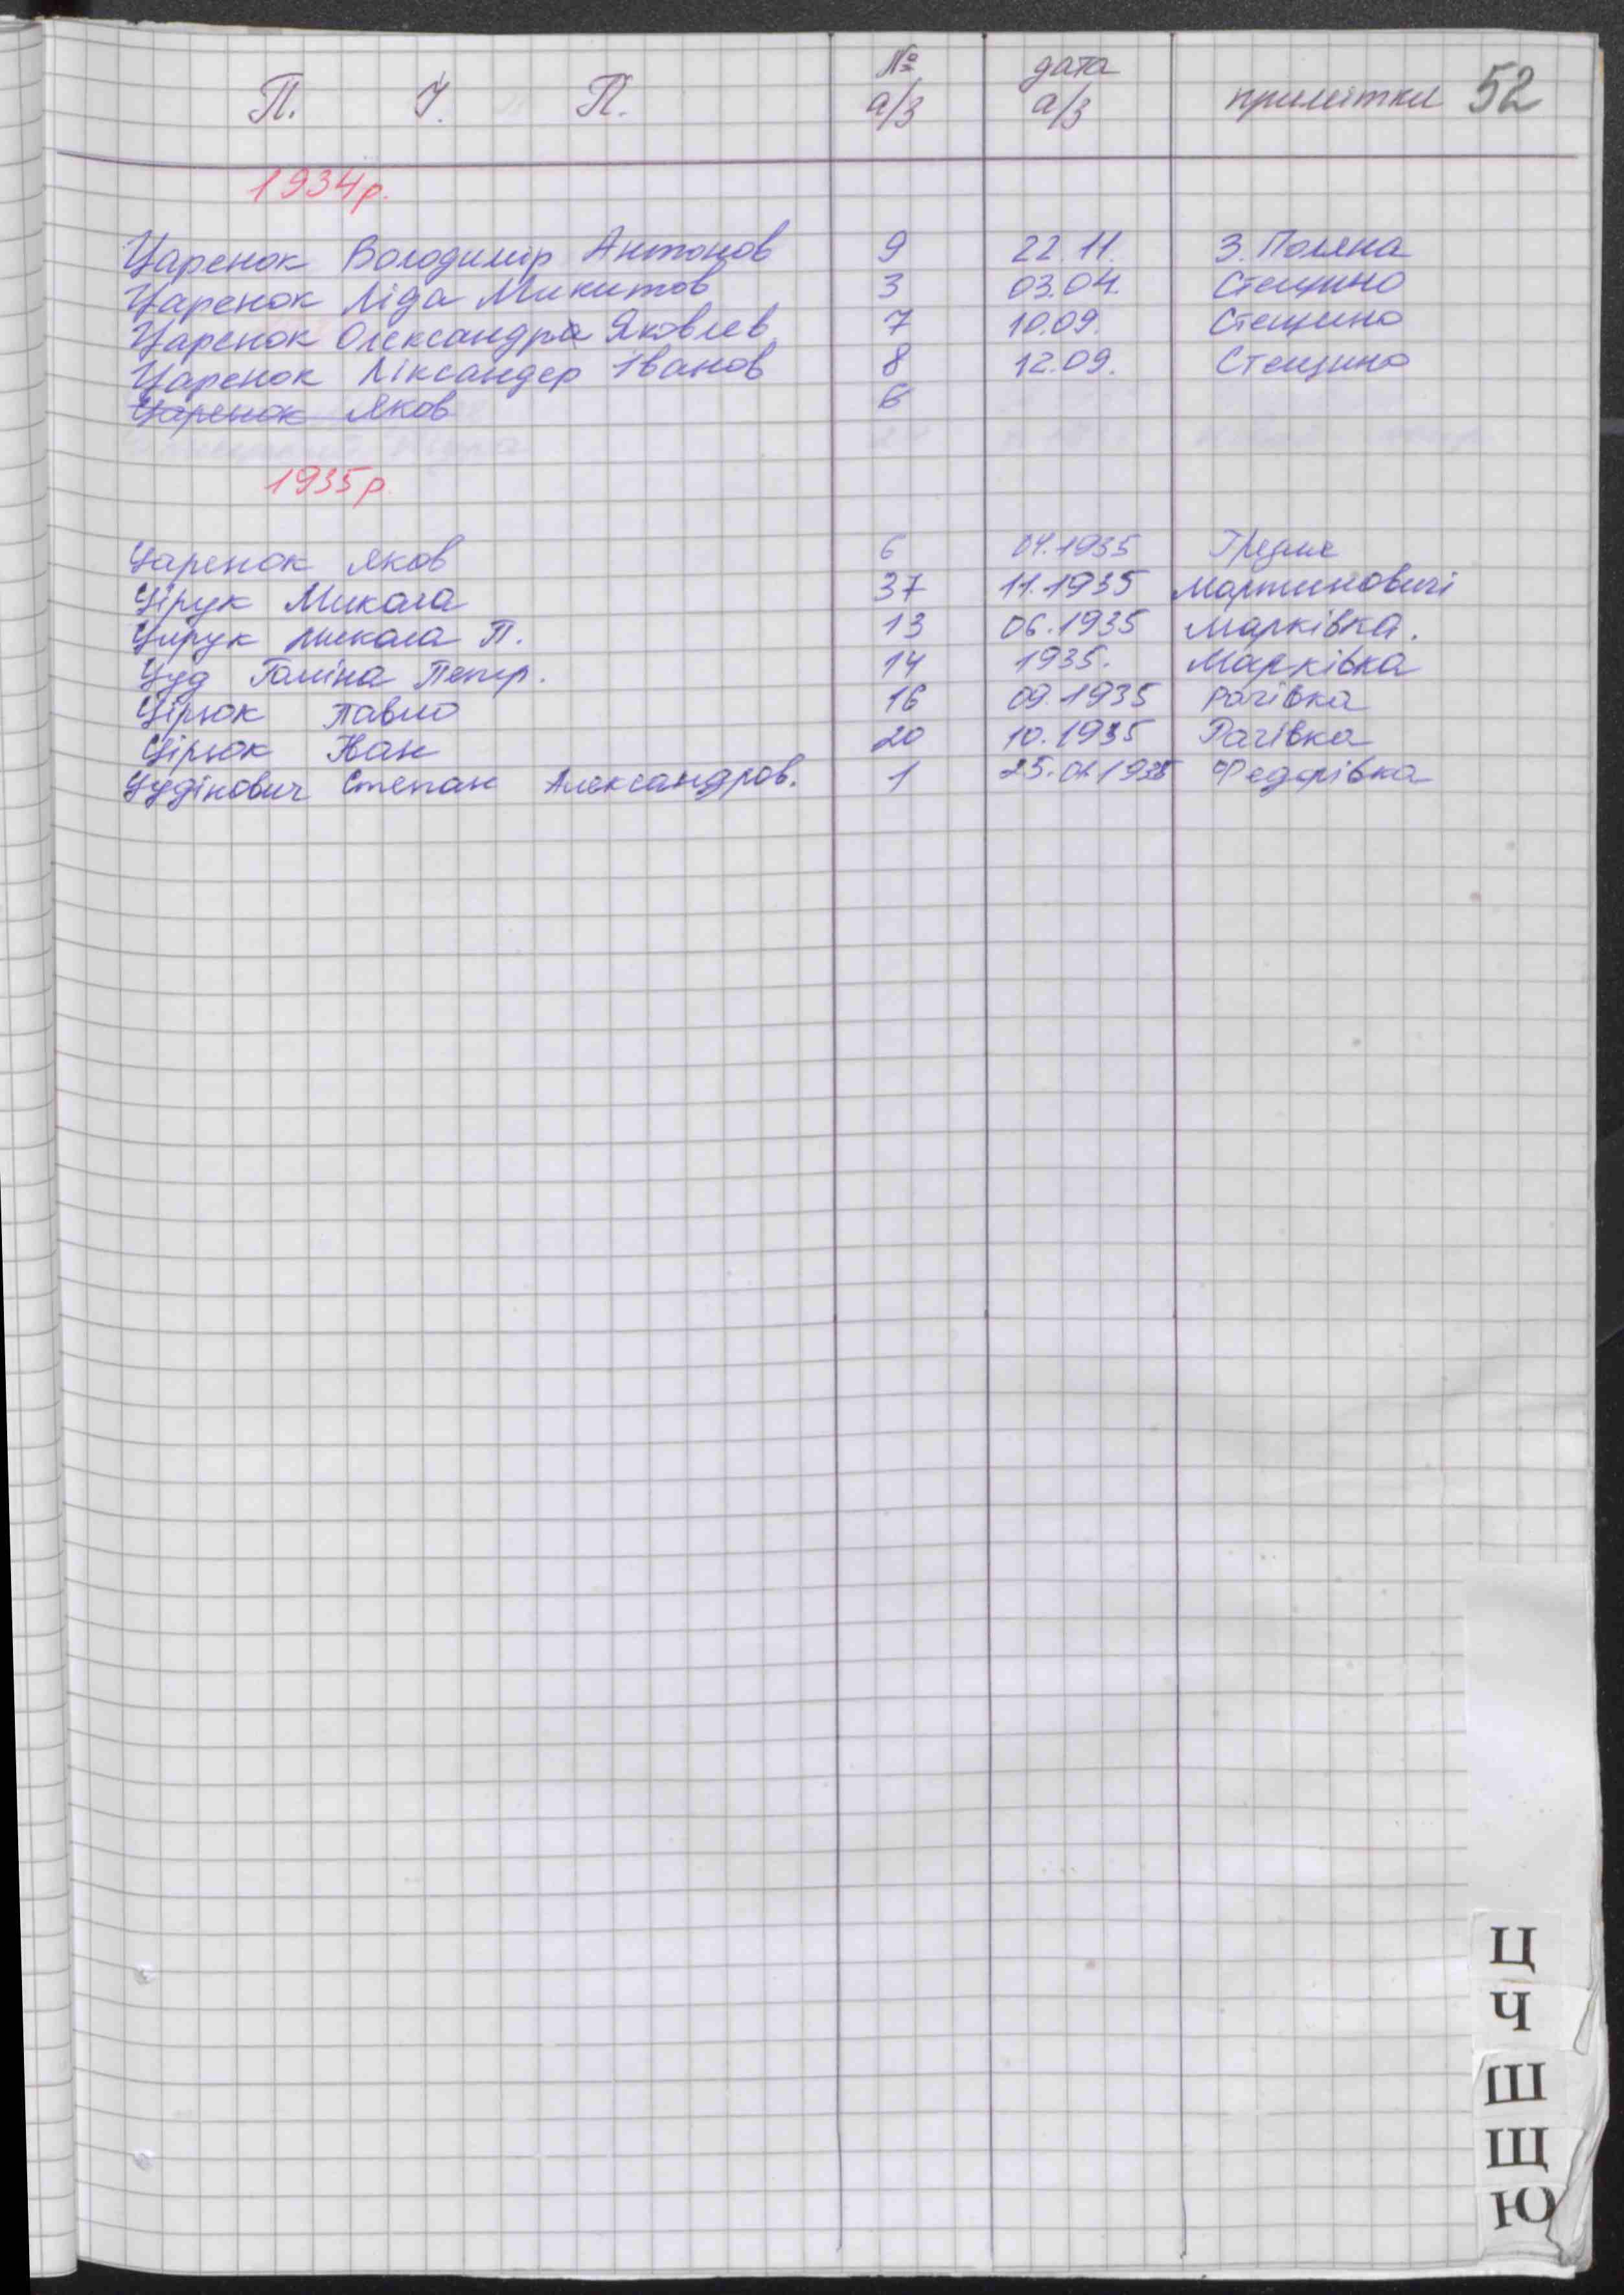 П. І. П. № а/з дата а/з примітки 52
1934р.
Царенок Володимір Антонов 9 22.11. З. Поляна
Царенок Ліда Микитов 3 03.04. Стещино
Царенок Олександра Яковлев 7 10.09. Стещино
Царенок Ліксандер Іванов 8 12.09. Стещино
Царенок Яков 6
1935р.
Царенок Яков 6 04.1935
Цірук Микола 37 11.1935 Мартиновичі
Цирук Микола П. 13 06.1935 Марківка.
Цуд Галіна Петр. 14 1935. Марківка
Цірюк Павло 16 09.1935 Рагівка
Цірюк Іван 20 10.1935 Рагівка
Цудінович Степан Александров. 1 Федорівка
Ц
Ч
Ш
Щ
Ю